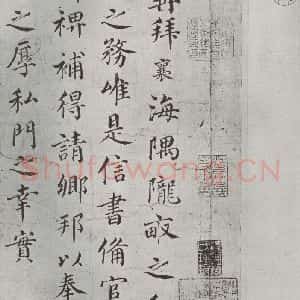 拜襄海隅隴畝之
之務唯是信書備官
裨補得請鄉邦以奉
之辱私門之幸實
Shufawang.CN